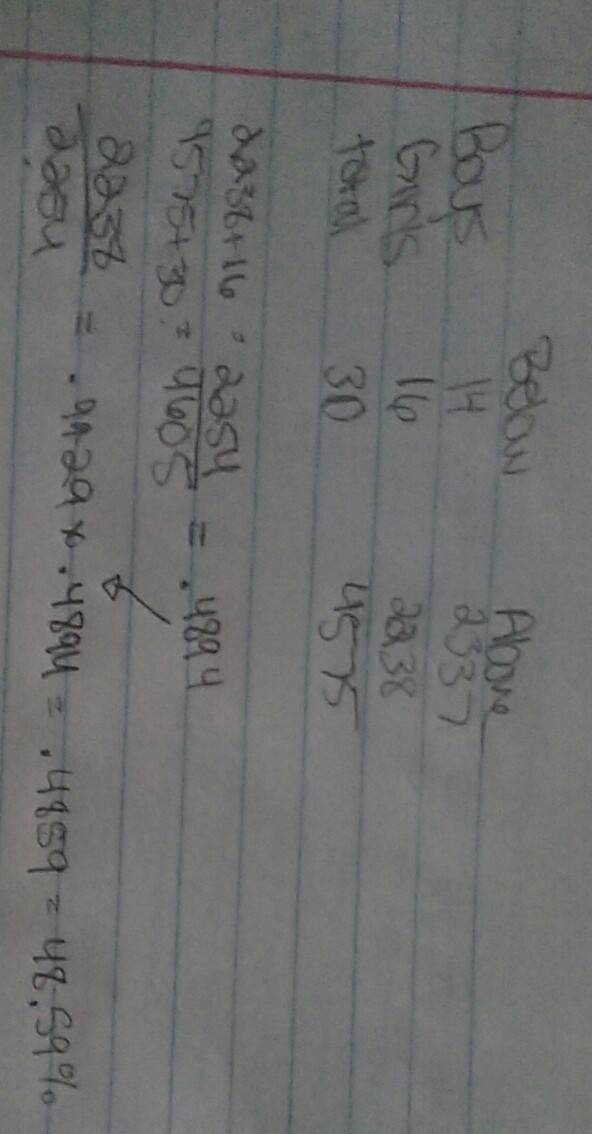 Below Above
Boys 14 2337
Girls 16 2238
total 30 4575
2238+16 = 2254
4575+30 = 4605 = .4894
2238
2254 = .9929 x .4894 = .4859 = 48.59%